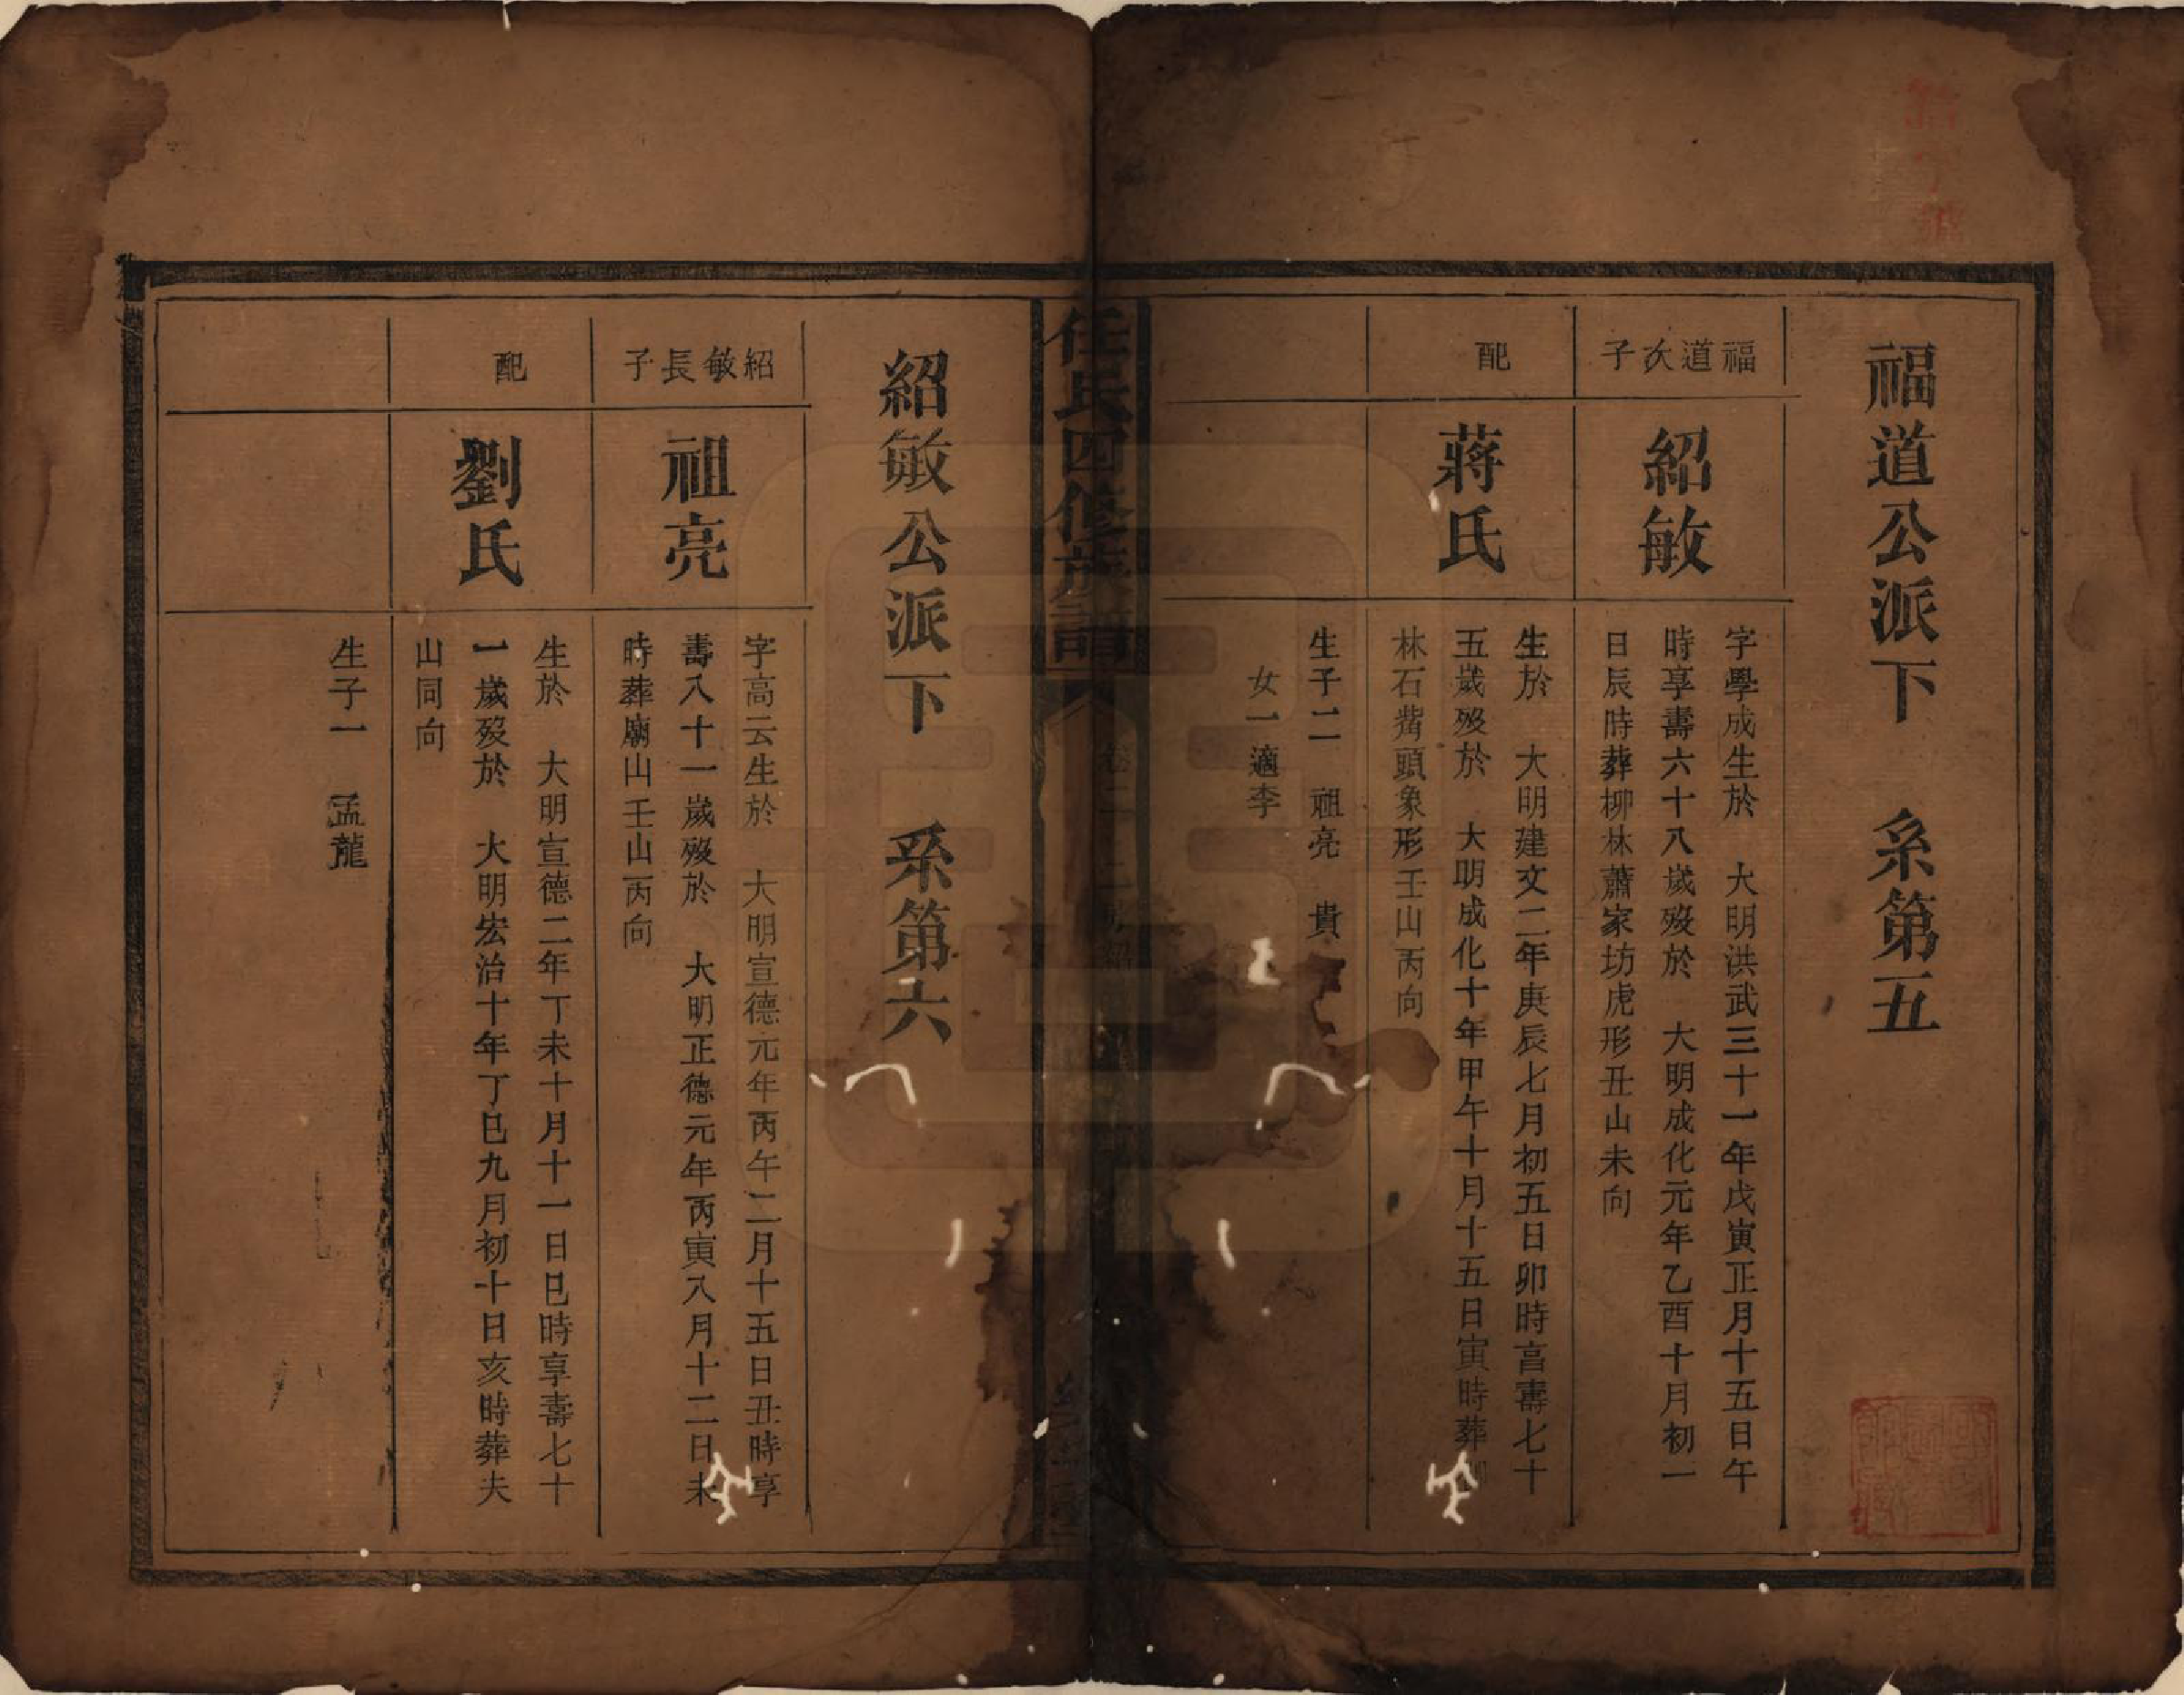 福道公派下　系第五
福道次子
紹敏
字學成生於　大明洪武三十一年戊寅正月十五日午
時享壽六十八歲歿於　大明成化元年乙酉十月初一
日辰時葬柳林蕭家坊虎形丑山未向
配
蔣氏
生於　大明建文二年庚辰七月初五日卯時享壽七十
五歲歿於　大明成化十年甲午十月十五日寅時葬
林石觜頭象形壬山丙向
生子二　祖亮　貴
女一適李
任氏四修族譜
紹敏公派下　系第六
紹敏長子
祖亮
字高云生於　大明宣德元年丙午二月十五日丑時享
壽八十一歲歿於　大明正德元年丙寅八月十二日未
時葬廟山壬山丙向
配
劉氏
生於　大明宣德二年丁未十月十一日巳時享壽七十
一歲歿於　大明宏治十年丁巳九月初十日亥時葬夫
山同向
生子一　孟龍